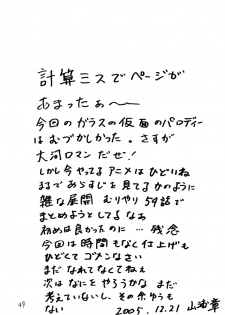 計算ミスでページが
あまったぁ〜
今回のガラスの仮面のパロディー
はむづかしかった。さすが
大河ロマンだぜ!
しかし今やってるアニメはひどいね
まるであらすじを見てるかのように
雑な展開 むりやり59話で
まとめようとしてるなぁ
初めは良かったのに…残念
今回は時間もなく仕上げも
ひどくてゴメンなさい
まだなれてなくてねぇ
次はなにをやろうかな まだ
考えていないし、その余ゆうも
ない 2005.12.21 山
49